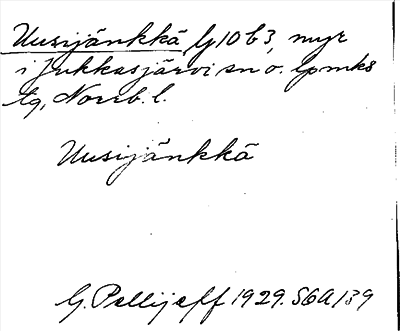 Uusijänkkä, Lj 10 b 3, myr
i Jukkasjärvi sn o. lpmks
tg, Norrb. l.
Uusijänkkä
G. Pellijeff 1929. S6A/39